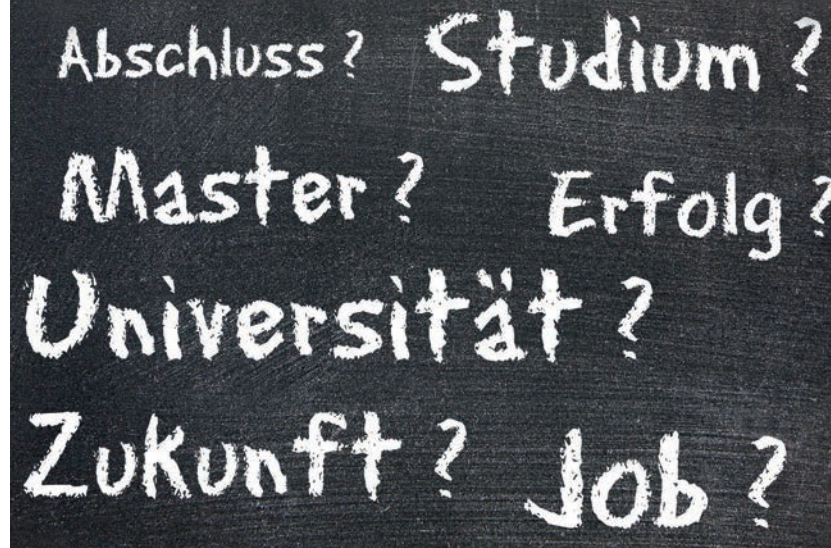 Abschluss? Studium?
Master? Erfolg?
Universität?
Zukunft? Job?